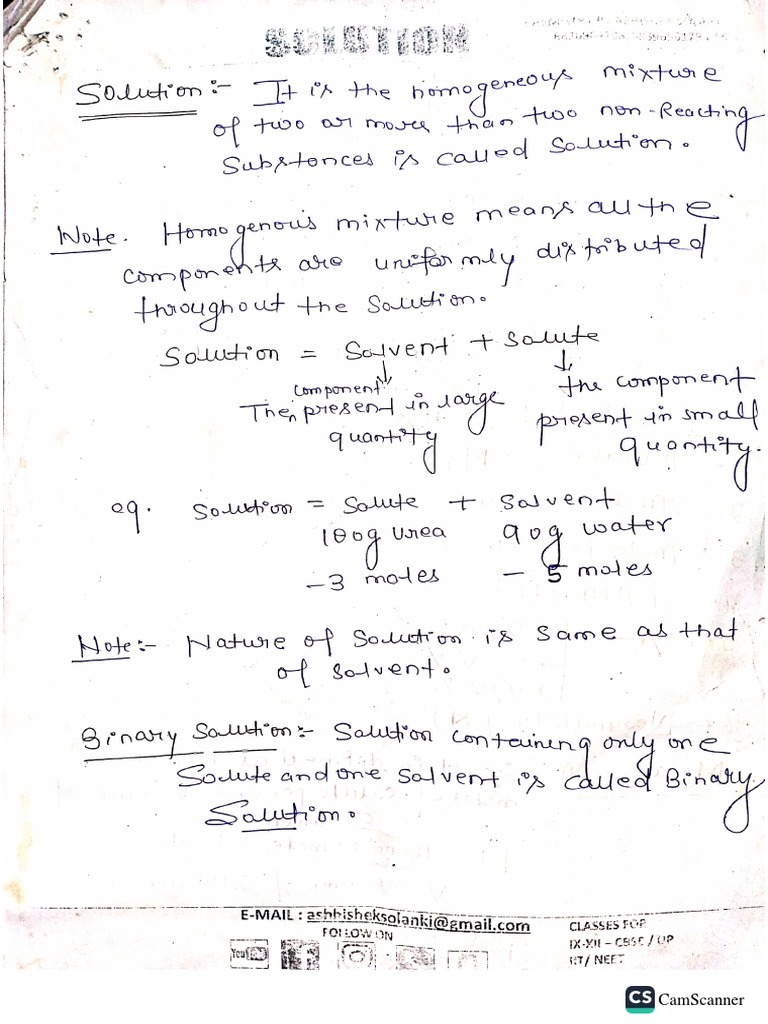 SOLUTION
Solution:- It is the homogeneous mixture
of two or more than two non-Reacting
Substances is called Solution.
Note. Homogenous mixture means all the
components are uniformly distributed
throughout the Solution.
Solution = Solvent + Solute
↓ ↓
component the component
The present in large present in small
quantity quantity.
eg. Solution = Solute + Solvent
180g urea 90g water
– 3 moles – 5 moles
Note:- Nature of Solution is same as that
of solvent.
Binary Solution:- Solution containing only one
Solute and one Solvent is called Binary
Solution.
E-MAIL : ashhisheksolanki@gmail.com
FOLLOW ON
CLASSES FOR
IX-XII – CBSE / UP
IIT/ NEET
You
CS CamScanner